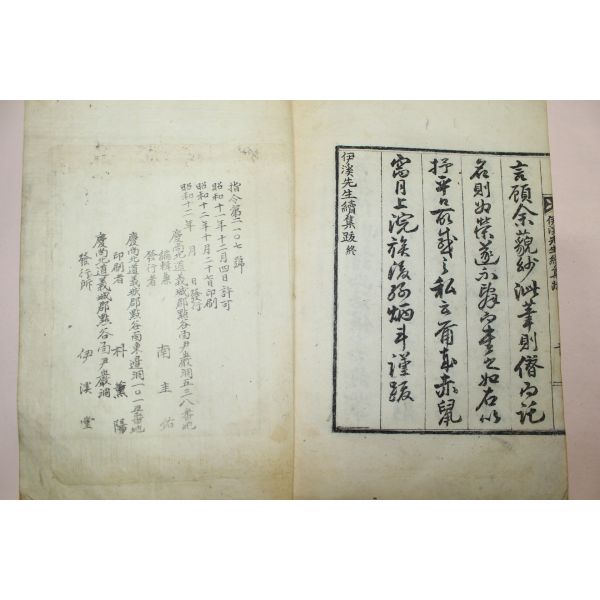 言顧余藐紗泚筆則僭而託
名則如榮遂不辭而書之如右以
抒平日哀感之私云爾歲赤鼠
窩月上浣族後孫炳斗謹跋
伊溪先生續集跋終
伊溪先生續集跋
指令第二一〇七號
昭和十一年十二月四日許可
昭和十二年十月二十七日印刷
昭和十二年 月 日發行
慶尚北道義城郡點谷面尹巖洞五三八番地
編輯兼發行者 南圭佑
慶尚北道義城郡點谷面東邊洞一〇一五番地
印刷者 朴薰陽
慶尚北道義城郡點谷面尹巖洞
發行所 伊溪堂